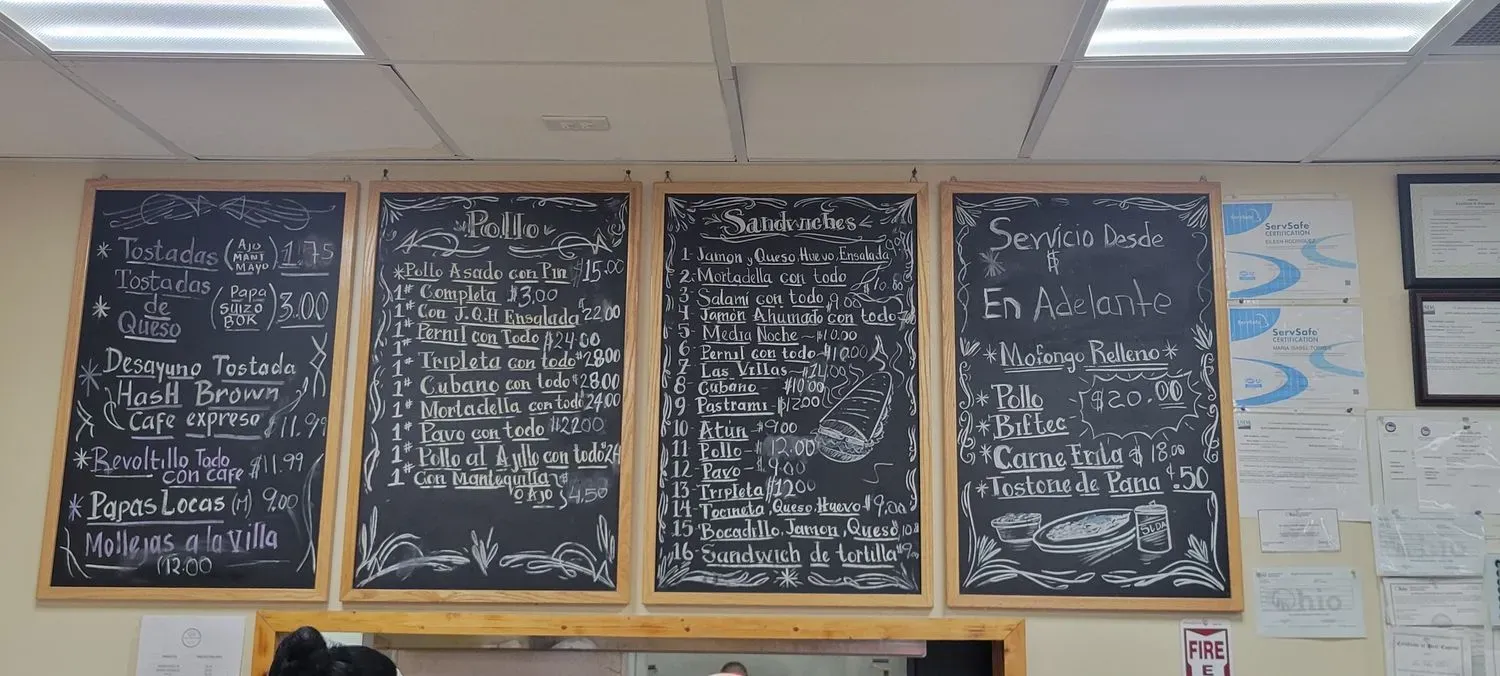 * Tostadas (Ajo Mant Mayo) 1.75
Tostadas
* de
Queso
(Papa Suizo Bok) 3.00
* Desayuno Tostada
Hash Brown
Cafe expreso $11.99
* Revoltillo Todo
con Cafe $11.99
* Papas Locas (M) 9.00
Mollejas a la Villa
(12.00
Pollo
*Pollo Asado con Pin $15.00
1# Completa $3.00
1# Con J.Q.H Ensalada 22.00
1# Pernil con Todo $24.00
1# Tripleta con todo $28.00
1# Cubano con todo $28.00
1# Mortadella con todo 24.00
1# Pavo con todo $22.00
1# Pollo al Ajillo con todo
1# Con Mantequilla
o Ajo $4.50
Sandwiches
1- Jamon y Queso, Huevo, Ensalada
2- Mortadella con todo
3- Salami con todo 9.00
4- Jamon Ahumado con todo
5- Media Noche - $10.00
6- Pernil con todo
7- Las Villas
8- Cubano $10.00
9- Pastrami - $12.00
10- Atún - $9.00
11- Pollo - 12.00
12- Pavo - 9.00
13- Tripleta $12.00
14- Tocineta, Queso, Huevo $9.00
15- Bocadillo, Jamon, Queso
16- Sandwich de tortilla
Servicio Desde
$
En Adelante
* Mofongo Relleno *
* Pollo
* Biftec
$20.00
* Carne Frita $18.00
* Tostone de Pana $.50
SODA
ServSafe
CERTIFICATION
EILEEN RODRIGUEZ
ServSafe
CERTIFICATION
Ohio
FIRE
E